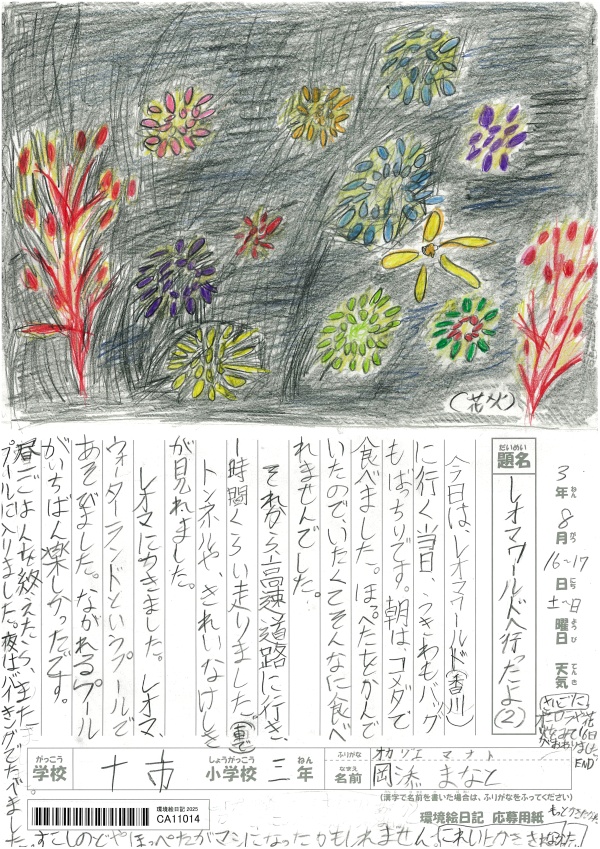 (花火)
3年 8月 16〜17日 土〜日曜日 天気
ねん がつ にち ようび てんき
だいめい
題名
レオマワールドへ行ったよ②
今日は、レオマワールド(香川)
に行く当日、うきわもバッグ
もばっちりです。朝は、コメダで
食べました。ほっぺたをかんで
いたので、いたくてそんなに食べ
れませんでした。
それから高速道路に行き、
1時間くらい走りました。(車で)
トンネルや、きれいなけしき
が見れました。
レオマにつきました。レオマ、
ウォーターランドというプールで
あそびました。ながれるプール
がいちばん楽しかったです。
昼ごはんを終えたら、また
プールに入りました。夜はバイキングでたべました。
すこしのどやほっぺたがマシになったかもしれません。
さいごに
オーロラや花
火をみて16日
がおわりました
END
がっこう
学校
十市
しょうがっこう
小学校
三年
ねん
ふりがな
オカゾエ マナト
なまえ
名前
岡添 まなと
(漢字で名前を書いた場合は、ふりがなをふってください)
環境絵日記2025
CA11014
環境絵日記 応募用紙